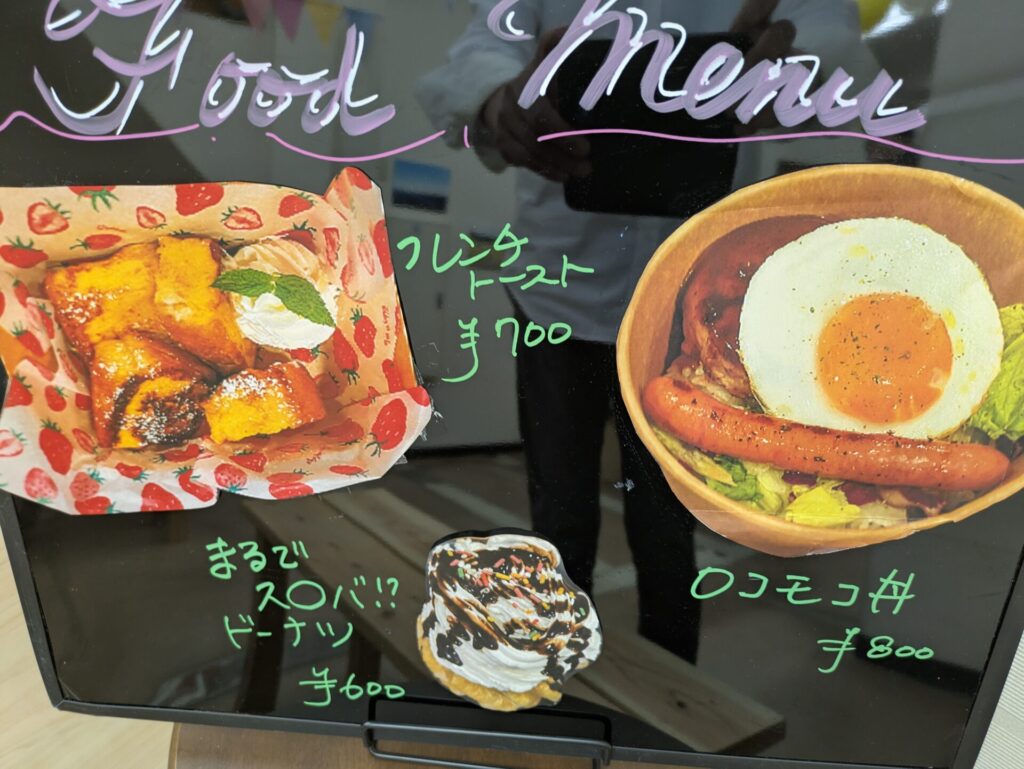 Food Menu
フレンチ
トースト
¥700
まるで
ス〇バ!?
ドーナツ
¥600
ロコモコ丼
¥800